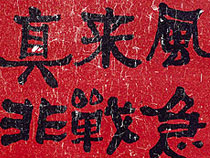 真来風
非戰急